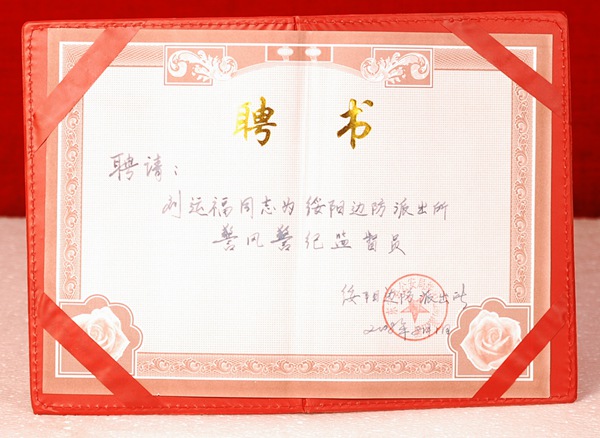 聘 书
聘请：
刘运福同志为绥阳边防派出所
警风警纪监督员
绥阳边防派出所